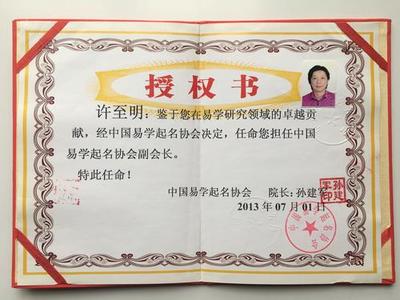 授权书
许至明：鉴于您在易学研究领域的卓越贡
献，经中国易学起名协会决定，任命您担任中国
易学起名协会副会长。
特此任命！
中国易学起名协会 院长：孙建军
2013 年 07 月 01 日